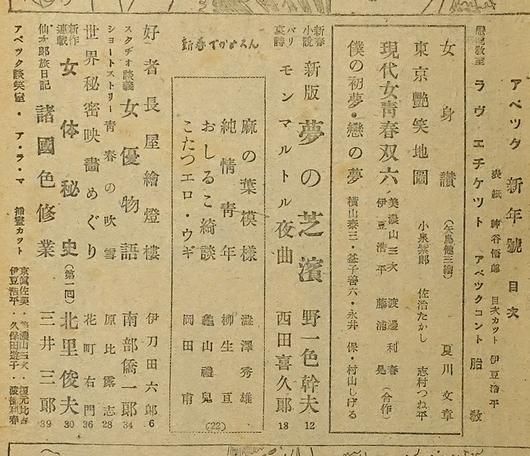 アベック 新年號 目次
表紙 神谷悟郎 目次カット 伊豆浩平
ラヴエチケツト アベックコント 胎敎
女身讃 (矢島健三繪) 夏川文章
東京艶笑地圖 小泉紫郎 佐治たかし 志村つね平
現代女靑春双六 美濃山三次 渡邊利春 伊豆浩平 藤浦晃 (合作)
僕の初夢・戀の夢 橫山泰三・益子善六・永井保・村山しげる
新春小説 新版 夢の芝濱 野一色幹夫 12
パリ哀詩 モンマルトル夜曲 西田喜久郎 18
新春でかめろん
麻の葉模樣 瀧澤秀雄
純情靑年 柳生亘
おしるこ綺談 龜山禮兒
こたつエロ・ウギ 岡田甫
(22)
好者長屋繪燈樓 伊刀田六郎 6
スタヂオ談議 女優物語 南部僑一郎 34
ショートストーリー 靑春の吹雪 原比露志 28
世界秘密映畵めぐり 花町右門 36
新作連載 女体秘史 (第一回) 北里俊夫 30
仙次郎旅日記 諸國色修業 三井三郎 39
アベック談笑室・ア・ラ・マ 插畫カット 京龍佐美・美濃山三次・穗元比 伊豆浩平・久保田瓏子・渡邊利春